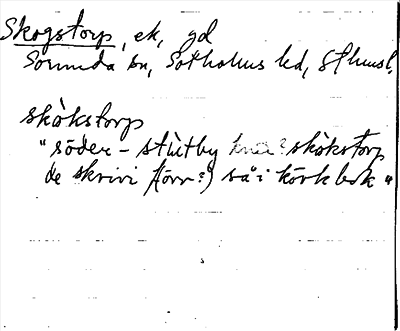 Skogstorp, ek, gd
Sorunda sn, Sotholms hd, Sthmsl.
skòkstorp
"söder - stùtby skòkstorp
de skrivi (förr?) sa i körkbok"